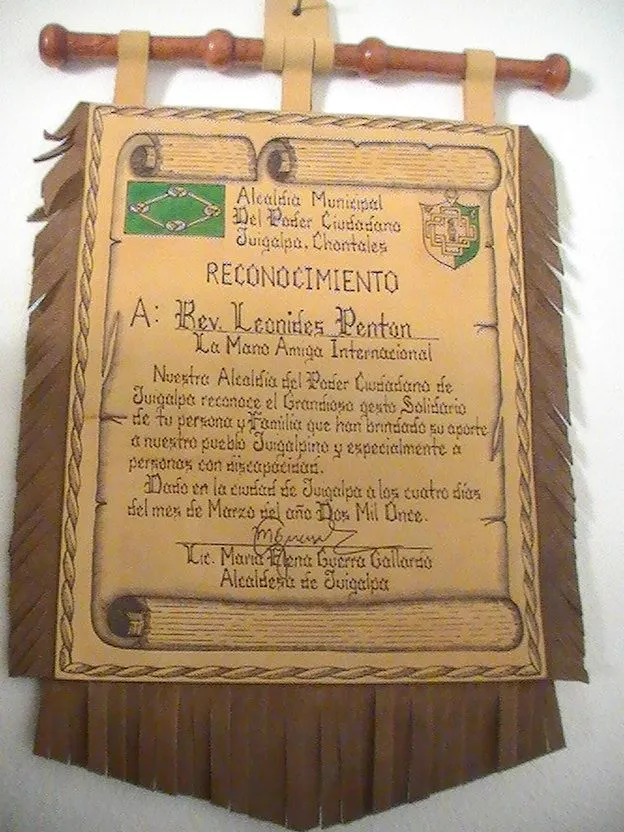 Alcaldía Municipal
Del Poder Ciudadano
Juigalpa, Chontales
RECONOCIMIENTO
A: Rev. Leonides Penton
La Mano Amiga Internacional
Nuestra Alcaldía del Poder Ciudadano de
Juigalpa reconoce el Grandioso gesto Solidario
de tu persona y Familia que han brindado su aporte
a nuestro pueblo Juigalpino y especialmente a
personas con discapacidad.
Dado en la ciudad de Juigalpa a los cuatro días
del mes de Marzo del año Dos Mil Once.
Lic. María Elena Guerra Gallardo
Alcaldesa de Juigalpa